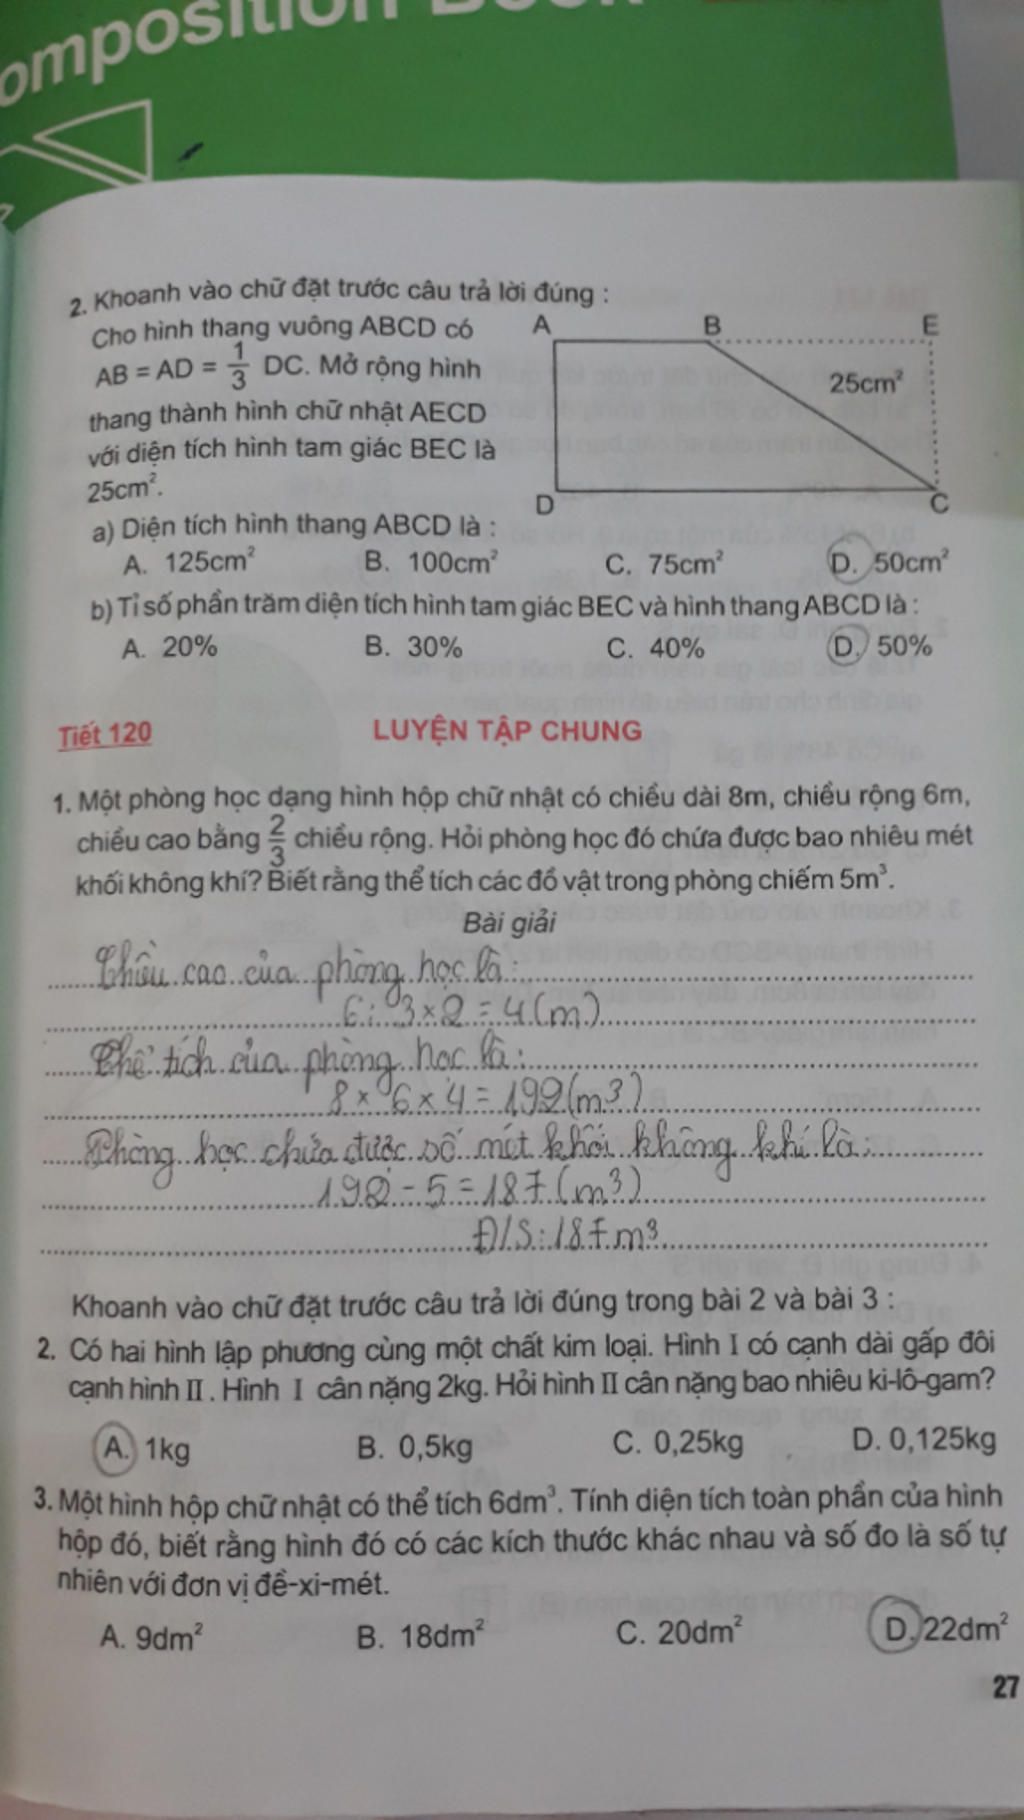 omposition Book
2. Khoanh vào chữ đặt trước câu trả lời đúng :
Cho hình thang vuông ABCD có
AB = AD = 1/3 DC. Mở rộng hình
thang thành hình chữ nhật AECD
với diện tích hình tam giác BEC là
25cm².
A B E
25cm²
D C
a) Diện tích hình thang ABCD là :
A. 125cm² B. 100cm² C. 75cm² D. 50cm²
b) Tỉ số phần trăm diện tích hình tam giác BEC và hình thang ABCD là :
A. 20% B. 30% C. 40% D. 50%
Tiết 120 LUYỆN TẬP CHUNG
1. Một phòng học dạng hình hộp chữ nhật có chiều dài 8m, chiều rộng 6m,
chiều cao bằng 2/3 chiều rộng. Hỏi phòng học đó chứa được bao nhiêu mét
khối không khí? Biết rằng thể tích các đồ vật trong phòng chiếm 5m³.
Bài giải
Chiều cao của phòng học là :
6 : 3 × 2 = 4 (m)
Thể tích của phòng học là :
8 × 6 × 4 = 192 (m3)
Phòng học chứa được số mét khối không khí là :
192 - 5 = 187 (m3)
Đ/S : 187 m3
Khoanh vào chữ đặt trước câu trả lời đúng trong bài 2 và bài 3 :
2. Có hai hình lập phương cùng một chất kim loại. Hình I có cạnh dài gấp đôi
cạnh hình II . Hình I cân nặng 2kg. Hỏi hình II cân nặng bao nhiêu ki-lô-gam?
A. 1kg B. 0,5kg C. 0,25kg D. 0,125kg
3. Một hình hộp chữ nhật có thể tích 6dm³. Tính diện tích toàn phần của hình
hộp đó, biết rằng hình đó có các kích thước khác nhau và số đo là số tự
nhiên với đơn vị đề-xi-mét.
A. 9dm² B. 18dm² C. 20dm² D. 22dm²
27